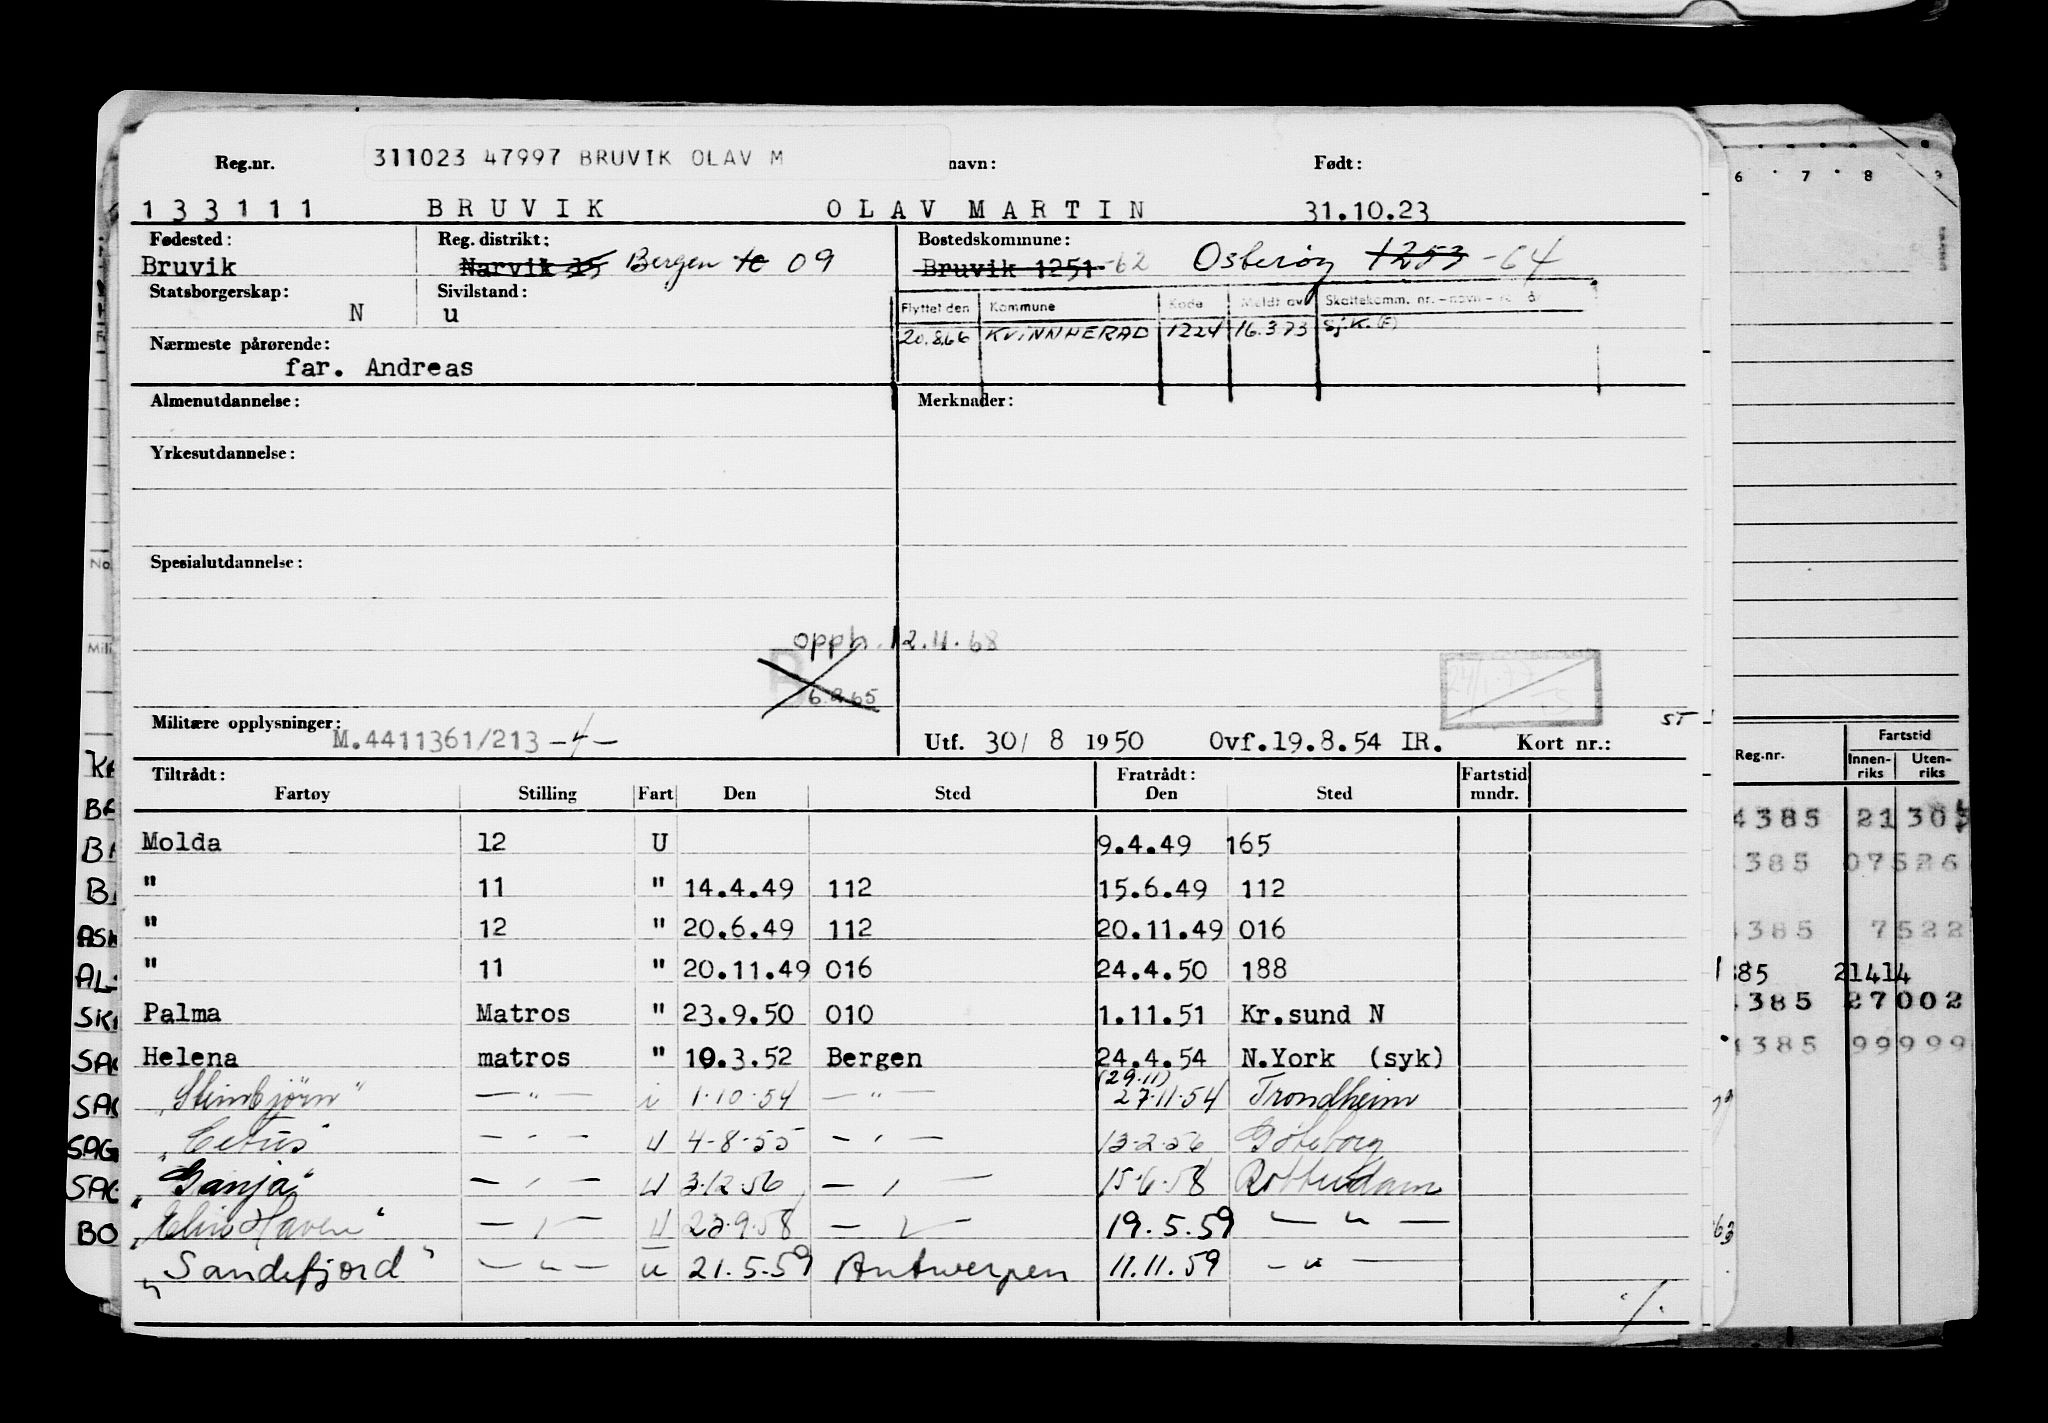 311023 47997 BRUVIK OLAV M
Reg.nr. navn: Født:
133111 BRUVIK OLAV MARTIN 31.10.23
Fødested: Reg. distrikt: Bostedskommune:
Bruvik Narvik 35 Bergen 09 Bruvik 1251 -62 Osterøy 1253 -64
Statsborgerskap: Sivilstand: Flyttet den Kommune Kode Meldt av Skattekomm. nr. - navn - for år
N u
20.8.66 KVINNHERAD 1224 16.3.73 Sj.K.(F)
Nærmeste pårørende:
far. Andreas
Almenutdannelse: Merknader:
Yrkesutdannelse:
Spesialutdannelse:
opph. 12.11.68
B 6.8.65
ST
Militære opplysninger: M.4411361/213 -4- Utf. 30/ 8 1950 Ovf.19.8.54 IR. Kort nr.:
Tiltrådt: Fratrådt: Fartstid
Fartøy Stilling Fart Den Sted Den Sted mndr.
Molda 12 U 9.4.49 165
" 11 " 14.4.49 112 15.6.49 112
" 12 " 20.6.49 112 20.11.49 016
" 11 " 20.11.49 016 24.4.50 188
Palma Matros " 23.9.50 010 1.11.51 Kr.sund N
Helena matros " 10.3.52 Bergen 24.4.54 N.York (syk)
(29.11)
"Steinbjørn" — " — i 1.10.54 — " — 27.11.54 Trondheim
"Cetus" — " — U 4-8-55 — " — 13-2-56 Göteborg
"Ganja" — " — U 3.12.56 — " — 15.6.58 Rotterdam
— " — U 23.9.58 — " — 19.5.59 — " —
"Sandefjord" — " — u 21.5.59 Antwerpen 11.11.59 — " —
./.
6 7 8 9
Fartstid
Reg.nr. Innen-riks Uten-riks
4385 21303
385 07526
385 7522
385 21414
4385 27002
4385 99999
63
No
Mili
BA
BA
ASK
AL
SK
SAG
SAG
SAG
SAG
BO